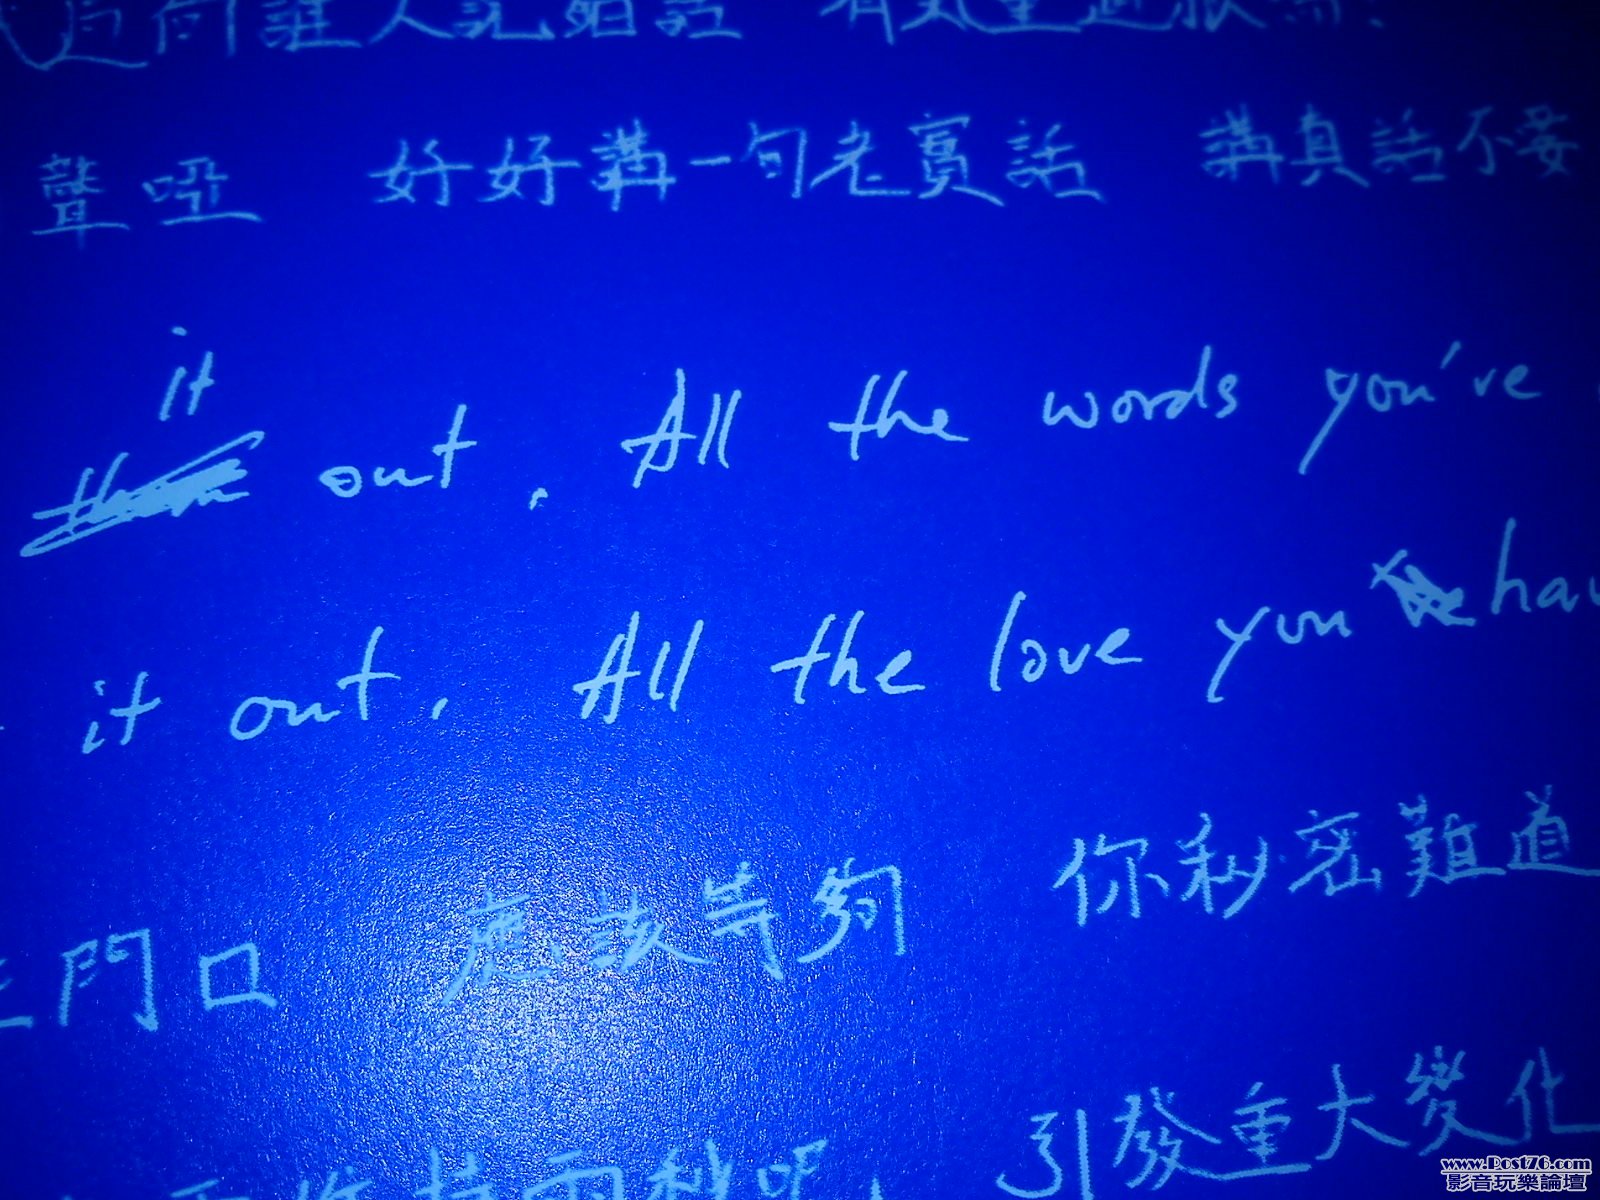 誰人說如話
聲啞 好好講一句老實話 講真話不要
it
out, All the words you've
it out, All the love you have
門口 應該等夠 你秘密難道
引發重大變化
www.Post76.com
影音玩樂論壇